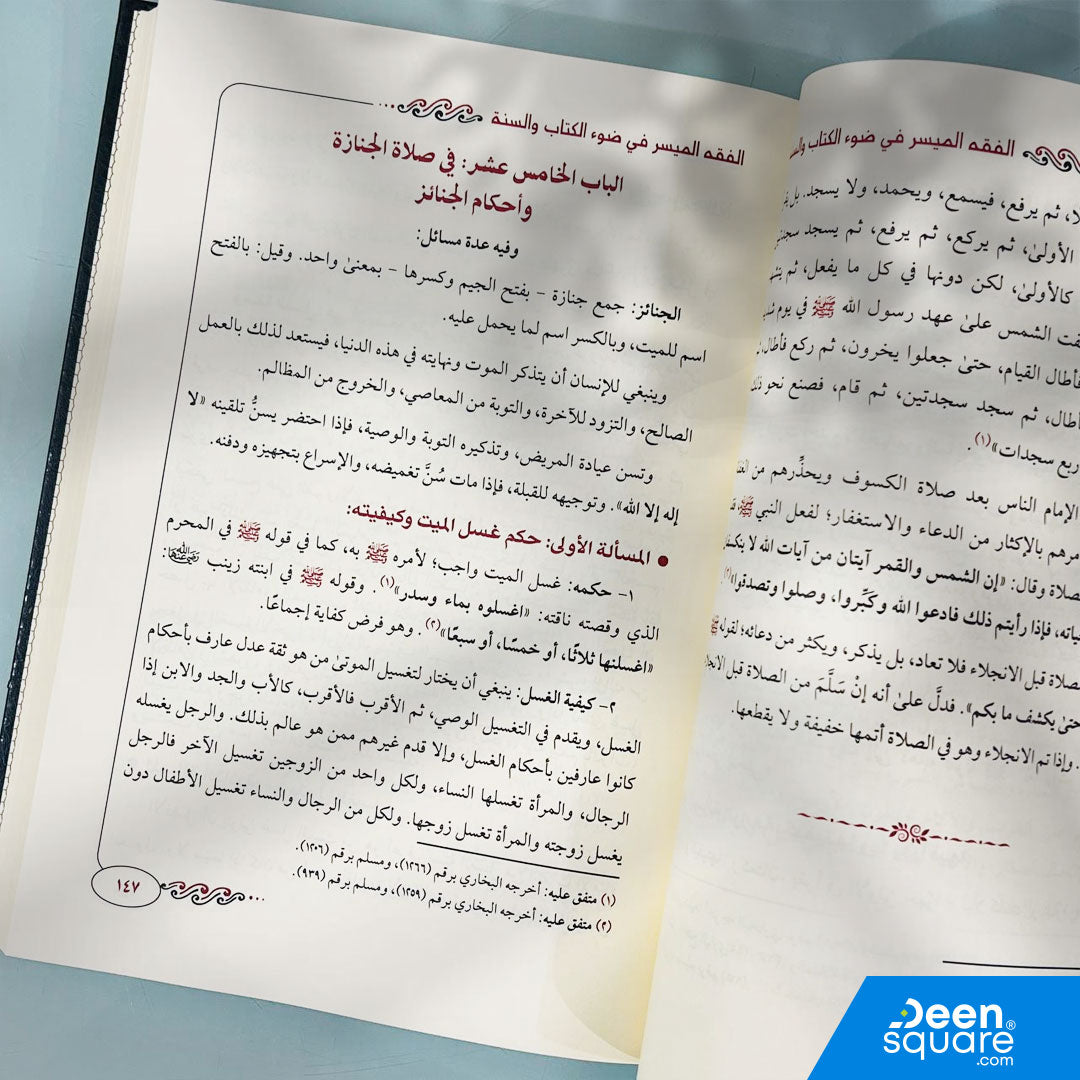 الفقه الميسر في ضوء الكتاب والسنة
لا، ثم يرفع، فيسمع، ويحمد، ولا يسجد. بل
الأولىٰ، ثم يركع، ثم يرفع، ثم يسجد سجدتين
كالأولىٰ، لكن دونها في كل ما يفعل، ثم
الشمس علىٰ عهد رسول الله ﷺ في يوم
فأطال القيام، حتىٰ جعلوا يخرون، ثم ركع فأطال،
ثم سجد سجدتين، ثم قام، فصنع نحو
سجدات» (١).
الإمام الناس بعد صلاة الكسوف ويحذِّرهم من
بالإكثار من الدعاء والاستغفار؛ لفعل النبي ﷺ،
وقال: «إن الشمس والقمر آيتان من آيات الله لا
فإذا رأيتم ذلك فادعوا الله وكَبِّروا، وصلوا وتصدقوا»
قبل الانجلاء فلا تعاد، بل يذكر، ويكثر من دعائه؛ لقوله ﷺ
حتىٰ يكشف ما بكم». فدلَّ علىٰ أنه إنْ سَلَّمَ من الصلاة قبل
وإذا تم الانجلاء وهو في الصلاة أتمها خفيفة ولا يقطعها.
الفقه الميسر في ضوء الكتاب والسنة
الباب الخامس عشر: في صلاة الجنازة
وأحكام الجنائز
وفيه عدة مسائل:
الجنائز: جمع جنازة – بفتح الجيم وكسرها – بمعنىٰ واحد. وقيل: بالفتح
اسم للميت، وبالكسر اسم لما يحمل عليه.
وينبغي للإنسان أن يتذكر الموت ونهايته في هذه الدنيا، فيستعد لذلك بالعمل
الصالح، والتزود للآخرة، والتوبة من المعاصي، والخروج من المظالم.
وتسن عيادة المريض، وتذكيره التوبة والوصية، فإذا احتضر يسنُّ تلقينه «لا
إله إلا الله». وتوجيهه للقبلة، فإذا مات سُنَّ تغميضه، والإسراع بتجهيزه ودفنه.
● المسألة الأولى: حكم غسل الميت وكيفيته:
١– حكمه: غسل الميت واجب؛ لأمره ﷺ به، كما في قوله ﷺ في المحرم
الذي وقصته ناقته: «اغسلوه بماء وسدر» (١). وقوله ﷺ في ابنته زينب رضي الله عنها:
«اغسلنها ثلاثًا، أو خمسًا، أو سبعًا» (٢). وهو فرض كفاية إجماعًا.
٢– كيفية الغسل: ينبغي أن يختار لتغسيل الموتىٰ من هو ثقة عدل عارف بأحكام
الغسل، ويقدم في التغسيل الوصي، ثم الأقرب فالأقرب، كالأب والجد والابن إذا
كانوا عارفين بأحكام الغسل، وإلا قدم غيرهم ممن هو عالم بذلك. والرجل يغسله
الرجال، والمرأة تغسلها النساء، ولكل واحد من الزوجين تغسيل الآخر فالرجل
يغسل زوجته والمرأة تغسل زوجها. ولكل من الرجال والنساء تغسيل الأطفال دون
(١) متفق عليه: أخرجه البخاري برقم (١٢٦٦)، ومسلم برقم (١٢٠٦).
(٢) متفق عليه: أخرجه البخاري برقم (١٢٥٩)، ومسلم برقم (٩٣٩).
١٤٧
Deen
square®
.com